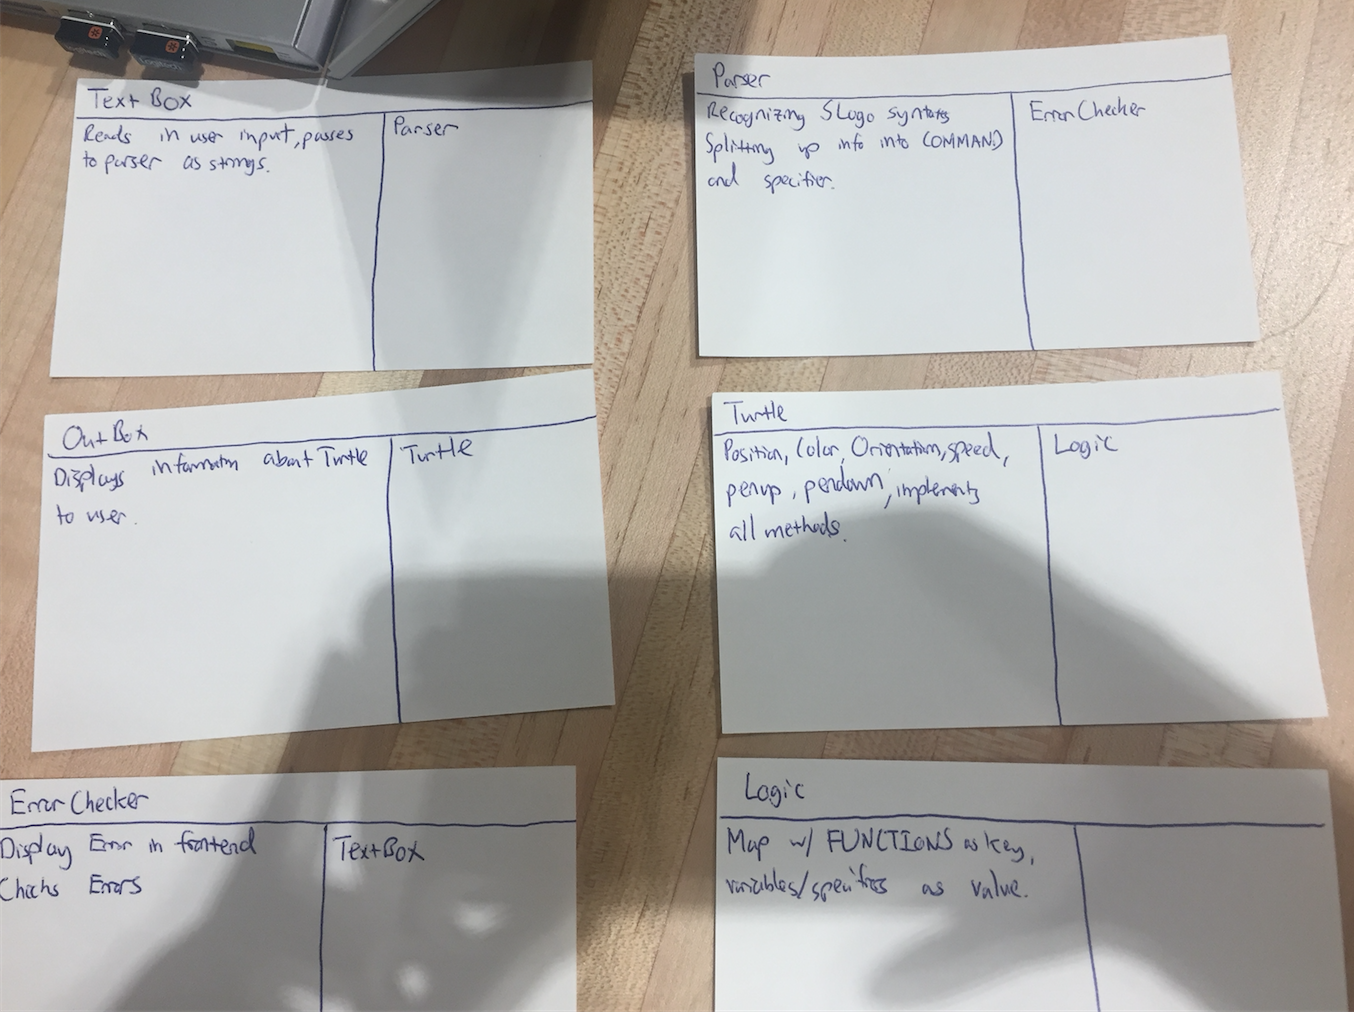 Text Box
Reads in user input, passes
to parser as strings.
Parser
Parser
Recognizing SLogo syntax
Splitting up info into COMMAND
and specifier.
Error Checker
Out Box
Displays information about Turtle
to user.
Turtle
Turtle
Position, Color, Orientation, speed,
penup, pendown, implements
all methods.
Logic
Error Checker
Display Error in frontend
Checks Errors
Text Box
Logic
Map w/ FUNCTIONS as key,
variables/specifiers as value.